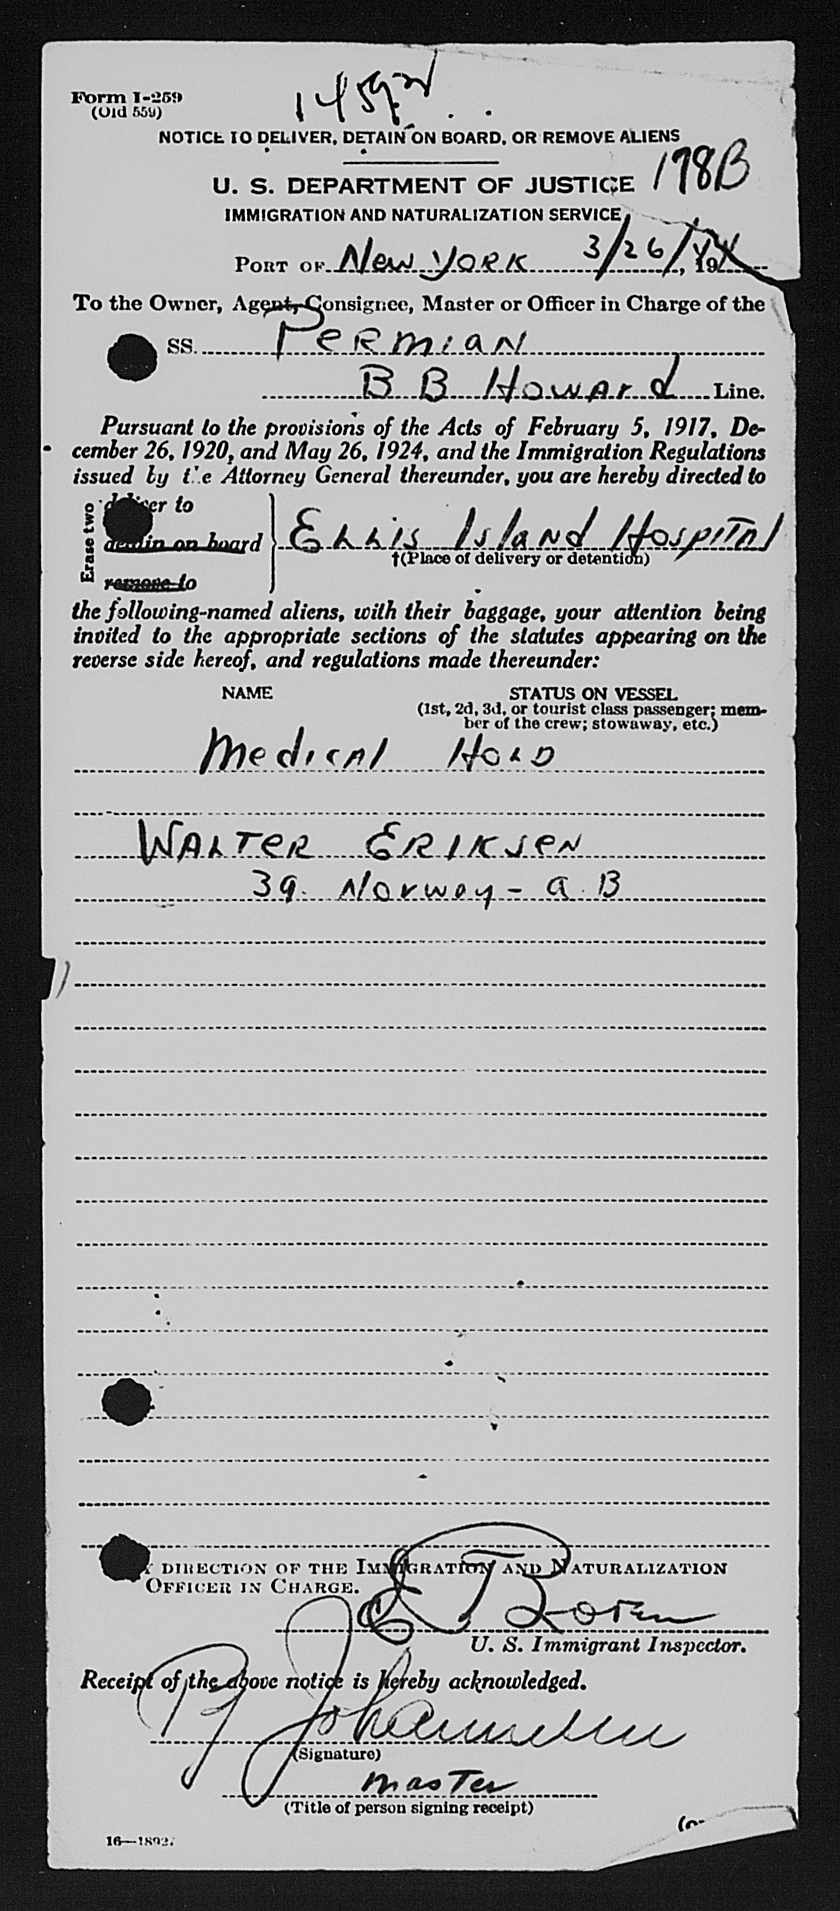 Form I-259
(Old 559)
NOTICE TO DELIVER, DETAIN ON BOARD, OR REMOVE ALIENS
178B
U. S. DEPARTMENT OF JUSTICE
IMMIGRATION AND NATURALIZATION SERVICE
PORT OF New York 3/26/44, 19
To the Owner, Agent, Consignee, Master or Officer in Charge of the
SS. Permian
B B Howard Line.
Pursuant to the provisions of the Acts of February 5, 1917, De-
cember 26, 1920, and May 26, 1924, and the Immigration Regulations
issued by the Attorney General thereunder, you are hereby directed to
Erase two
deliver to
detain on board
remove to
Ellis Island Hospital
†(Place of delivery or detention)
the following-named aliens, with their baggage, your attention being
invited to the appropriate sections of the statutes appearing on the
reverse side hereof, and regulations made thereunder:
NAME STATUS ON VESSEL
(1st, 2d, 3d, or tourist class passenger; mem-
ber of the crew; stowaway, etc.)
Medical Hold
Walter Eriksen
39. Norway - A B
BY DIRECTION OF THE IMMIGRATION AND NATURALIZATION
OFFICER IN CHARGE.
U. S. Immigrant Inspector.
Receipt of the above notice is hereby acknowledged.
Johannessen
(Signature)
Master
(Title of person signing receipt)